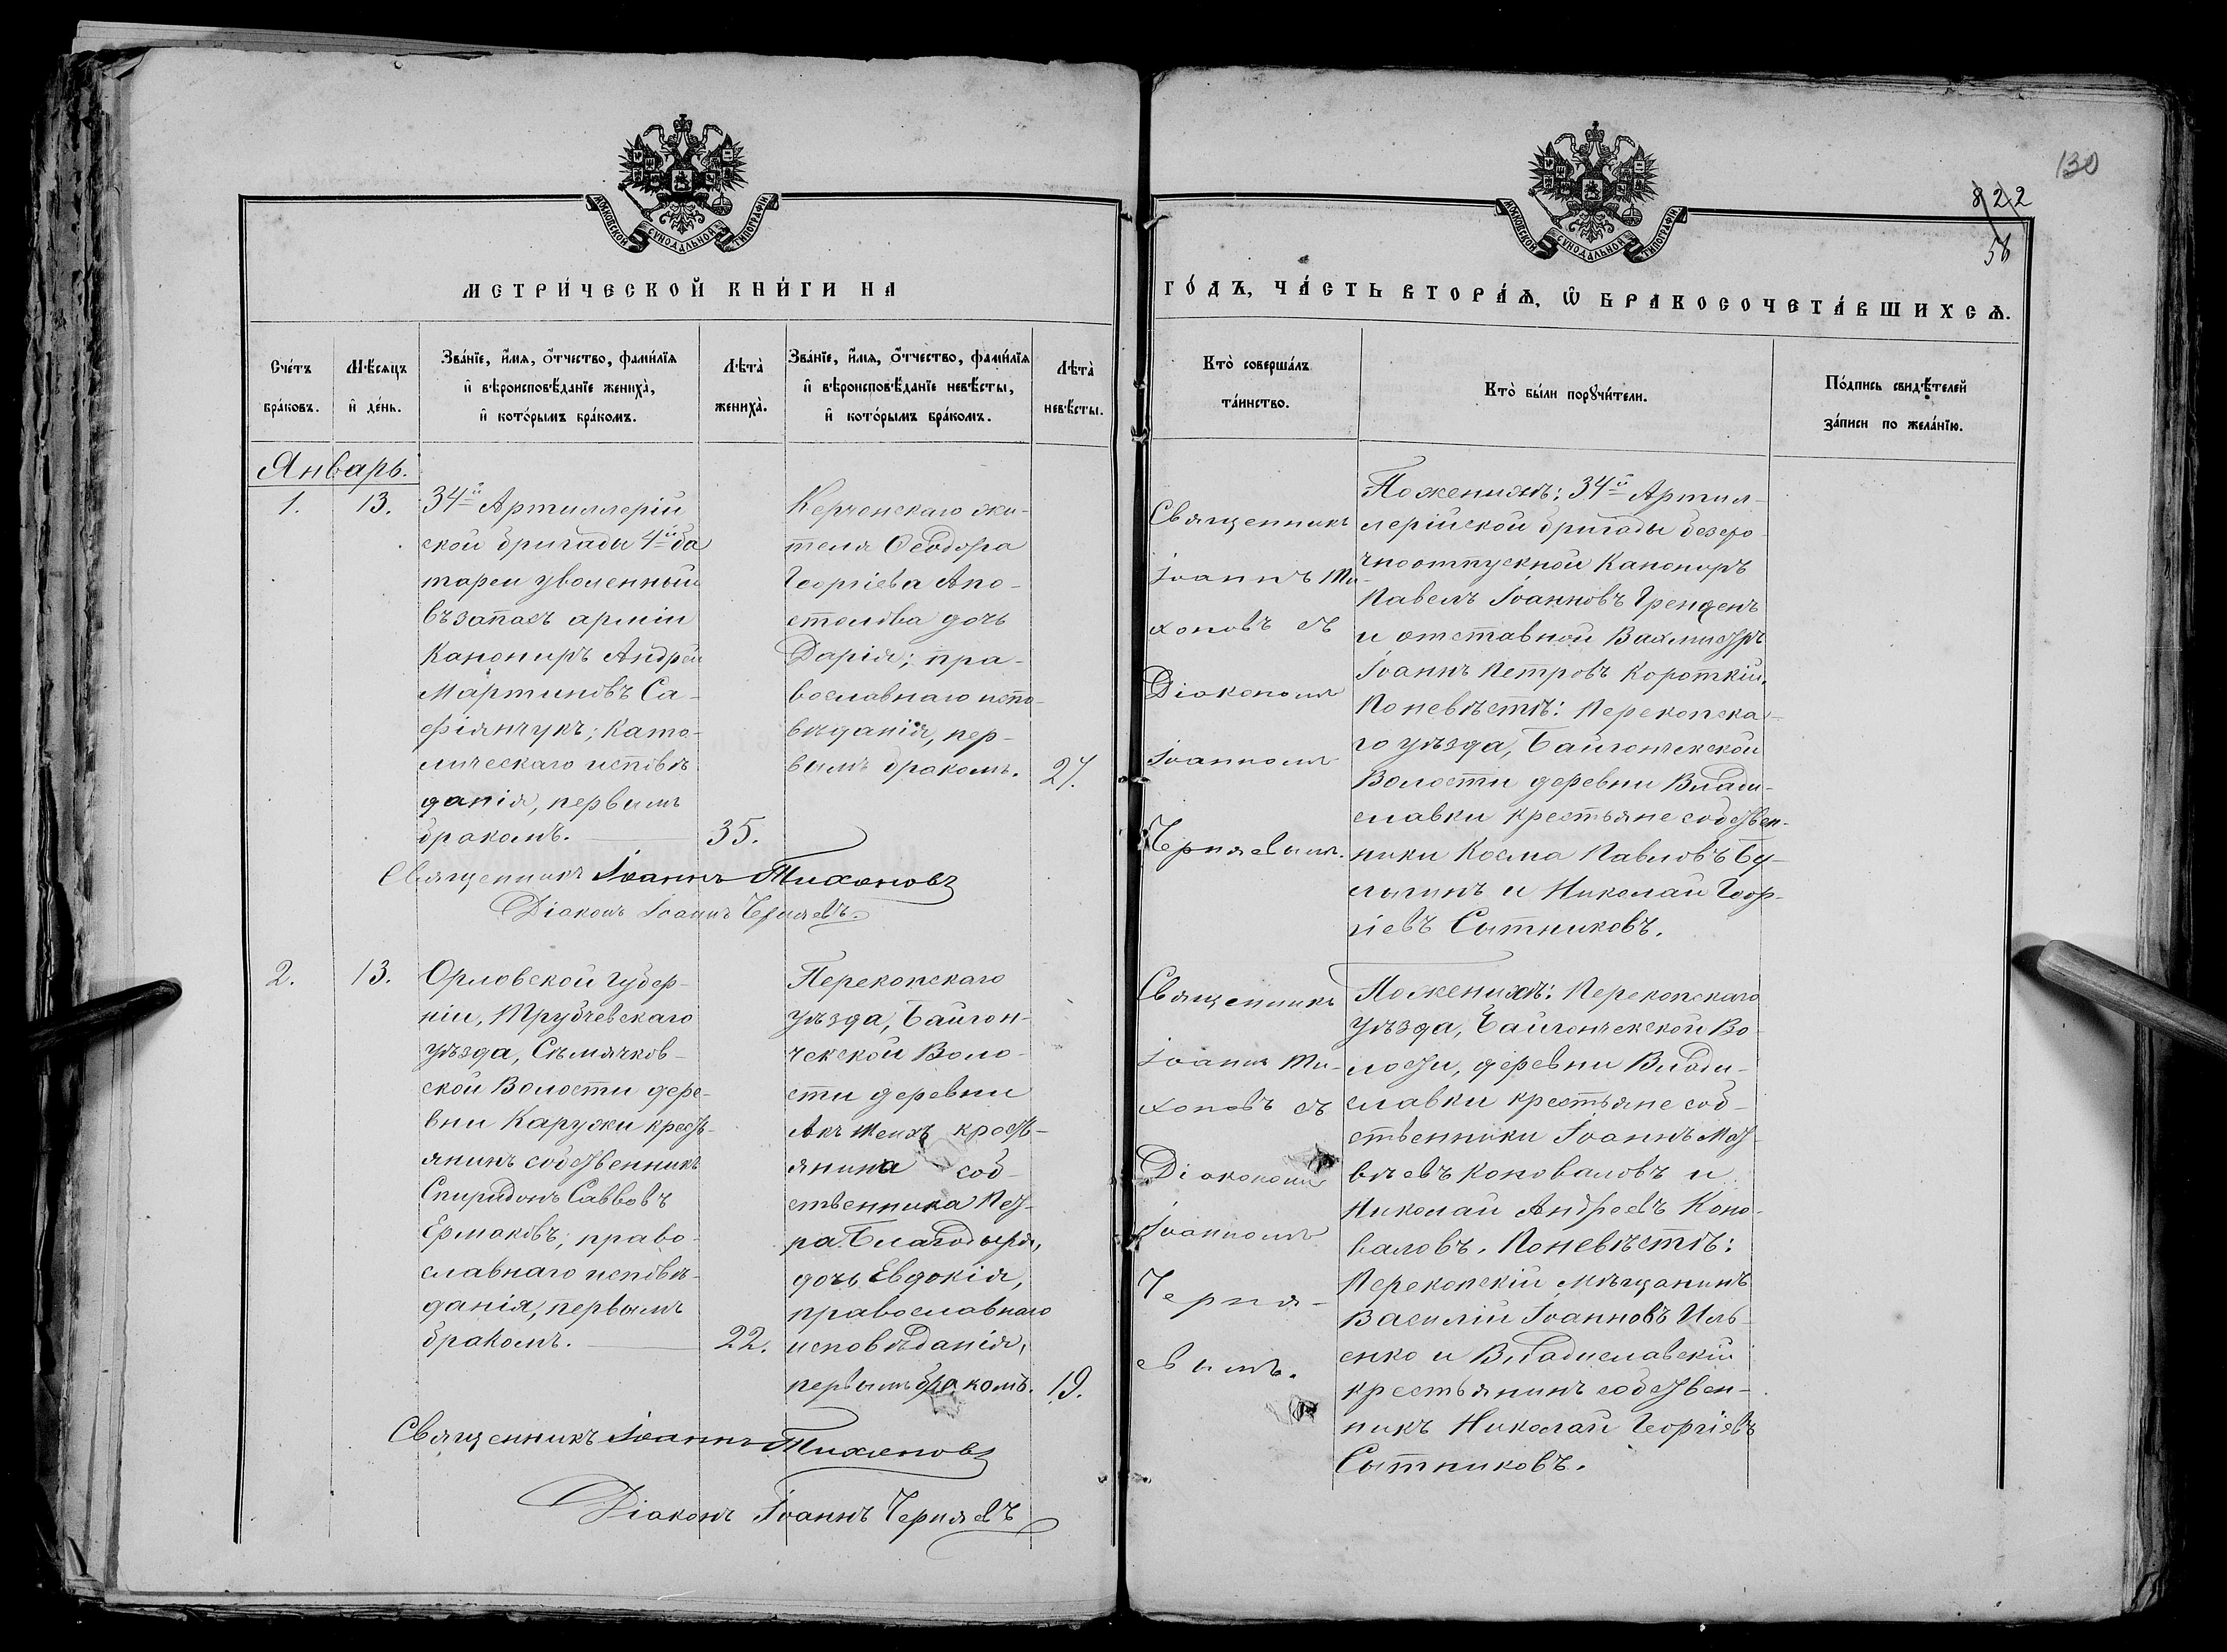 130
822
58
МОСКОВСКОЙ СѴНОДАЛЬНОЙ ТИПОГРАФІИ
МОСКОВСКОЙ СѴНОДАЛЬНОЙ ТИПОГРАФІИ
МЕТРИ́ЧЕСКОЙ КНИ́ГИ НА
ГО́ДЪ, ЧА́СТЬ ВТОРА́Ѧ, Ѡ҆ БРАКОСОЧЕТА́ВШИХСѦ.
Сче́тъ
бра́ковъ.
Мѣ́сѧцъ
и҆ де́нь.
Зва́нїе, и҆́мѧ, ѻ҆́тчество, фами́лїѧ
и҆ вѣроисповѣ́данїе жениха̀,
и҆ кото́рымъ бра́комъ.
Лѣ́та̀
жениха̀.
Зва́нїе, и҆́мѧ, ѻ҆́тчество, фами́лїѧ
и҆ вѣроисповѣ́данїе невѣ́сты,
и҆ кото́рымъ бра́комъ.
Лѣ́та̀
невѣ́сты.
Кто̀ соверша́лъ
та́инство.
Кто̀ бы́ли порꙋчи́тели.
По́дпись свидѣ́телей
за́писи по жела́нїю.
Январь.
1.
13.
34й Артиллерій
ской бригады 4й ба
тареи уволенный
въ запасъ арміи
Канониръ Андрей
Мартиновъ Са-
фіянчукъ; Като-
лическаго исповѣ
данія, первымъ
бракомъ.
35.
Керченскаго жи-
теля Ѳеодора
Георгіева Апо-
столова дочь
Дарія; пра-
вославнаго испо-
вѣданія, пер-
вымъ бракомъ.
27.
Священникъ
Іоаннъ Ти-
хоновъ съ
Діакономъ
Іоанномъ
Черняевымъ.
По женихѣ: 34й Артил-
лерійской бригады безсро-
чноотпускной Канониръ
Павелъ Іоанновъ
и отставной Вахмистръ
Іоаннъ Петровъ Короткій.
По невѣстѣ: Перекопска-
го уѣзда, Байгончекской
Волости деревни Влади-
славки крестьяне собствен-
ники Косма Павловъ Бу-
лыгинъ и Николай Геор-
гіевъ Сытниковъ.
Священникъ Іоаннъ Тихоновъ
Діаконъ Іоаннъ Черняевъ.
2.
13.
Орловской Губер-
ніи, Трубчевскаго
уѣзда, Сѣмячков-
ской Волости дере-
вни Каружи кресть-
янинъ собственникъ
Спиридонъ Саввовъ
Ермаковъ; право-
славнаго исповѣ-
данія, первымъ
бракомъ.
22.
Перекопскаго
уѣзда, Байгон-
чекской Воло-
сти деревни
Акъ Шеихъ кресть-
янина соб-
ственника Пет-
ра Благодыря,
дочь Евдокія,
православнаго
исповѣданія,
первымъ бракомъ.
19.
Священникъ
Іоаннъ Ти-
хоновъ съ
Діакономъ
Іоанномъ
Черня-
евымъ.
По женихѣ: Перекопскаго
уѣзда, Байгончекской Во
лости, деревни Влади-
славки крестьяне соб-
ственники Іоаннъ Мат-
вѣевъ Коноваловъ и
Николай Андреевъ Коно-
валовъ. По невѣстѣ:
Перекопскій мѣщанинъ
Василій Іоанновъ Иль-
енко и Владиславскій
крестьянинъ собствен-
никъ Николай Георгіевъ
Сытниковъ.
Священникъ Іоаннъ Тихоновъ
Діаконъ Іоаннъ Черняевъ